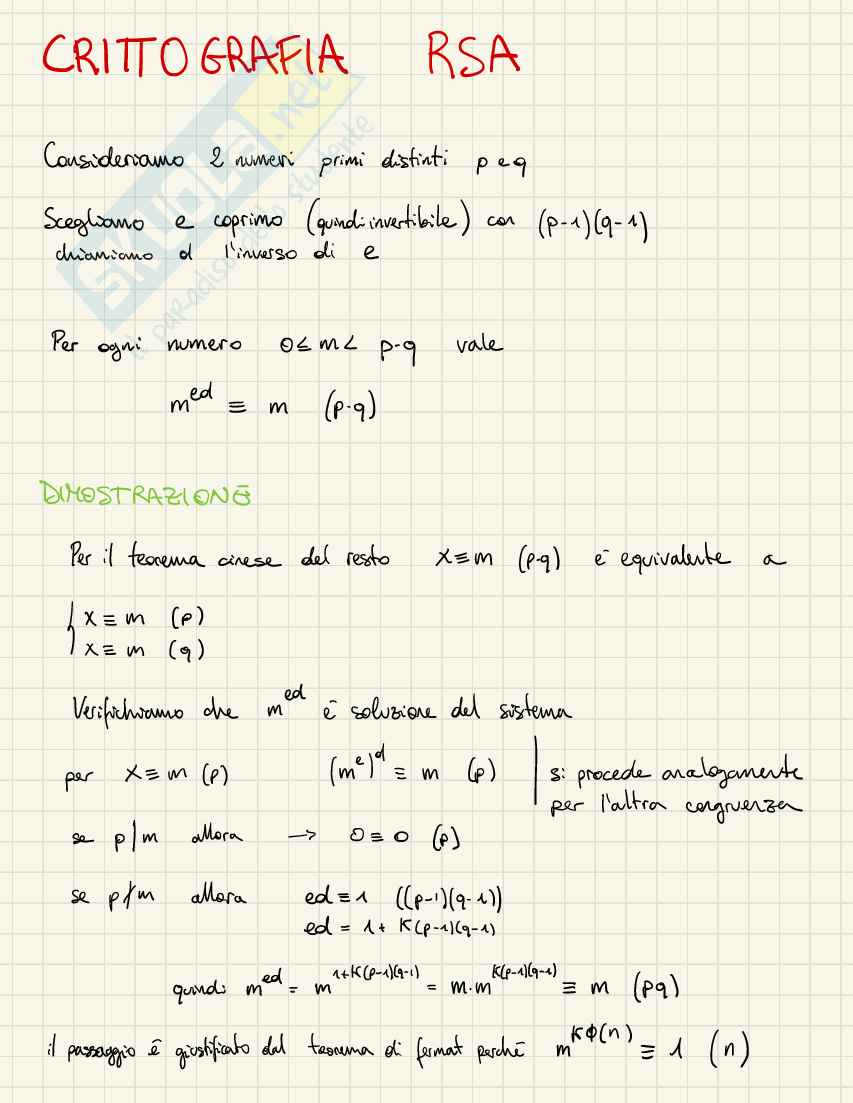 CRITTOGRAFIA RSA
SKUOLA.net
il paradiso dello studente
Consideriamo 2 numeri primi distinti p e q
Scegliamo e coprimo (quindi invertibile) con (p-1)(q-1)
chiamiamo d l'inverso di e
Per ogni numero 0≤m< p·q vale
m^ed ≡ m (p·q)
DIMOSTRAZIONE
Per il teorema cinese del resto x≡m (p·q) è equivalente a
{ x ≡ m (p)
x ≡ m (q)
Verifichiamo che m^ed è soluzione del sistema
per x≡m (p) (m^e)^d ≡ m (p) | si procede analogamente
per l'altra congruenza
se p|m allora → 0≡0 (p)
se p∤m allora ed≡1 ((p-1)(q-1))
ed = 1+ K(p-1)(q-1)
quindi m^ed = m^1+K(p-1)(q-1) = m·m^K(p-1)(q-1) ≡ m (pq)
il passaggio è giustificato dal teorema di fermat perchè m^Kϕ(n) ≡ 1 (n)